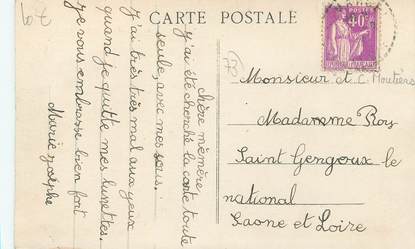 lot
CARTE POSTALE
POSTES
40c
77
chère mémère
j'ai été cherché la carte toute
seule, avec mes sous.
J'ai très très mal aux yeux
quand je quitte mes lunettes.
je vous embrasse bien fort
Marie Josèphe
Monsieur et C. Moutiers
Madamme Roy
Saint Gengoux le
national
Saone et Loire